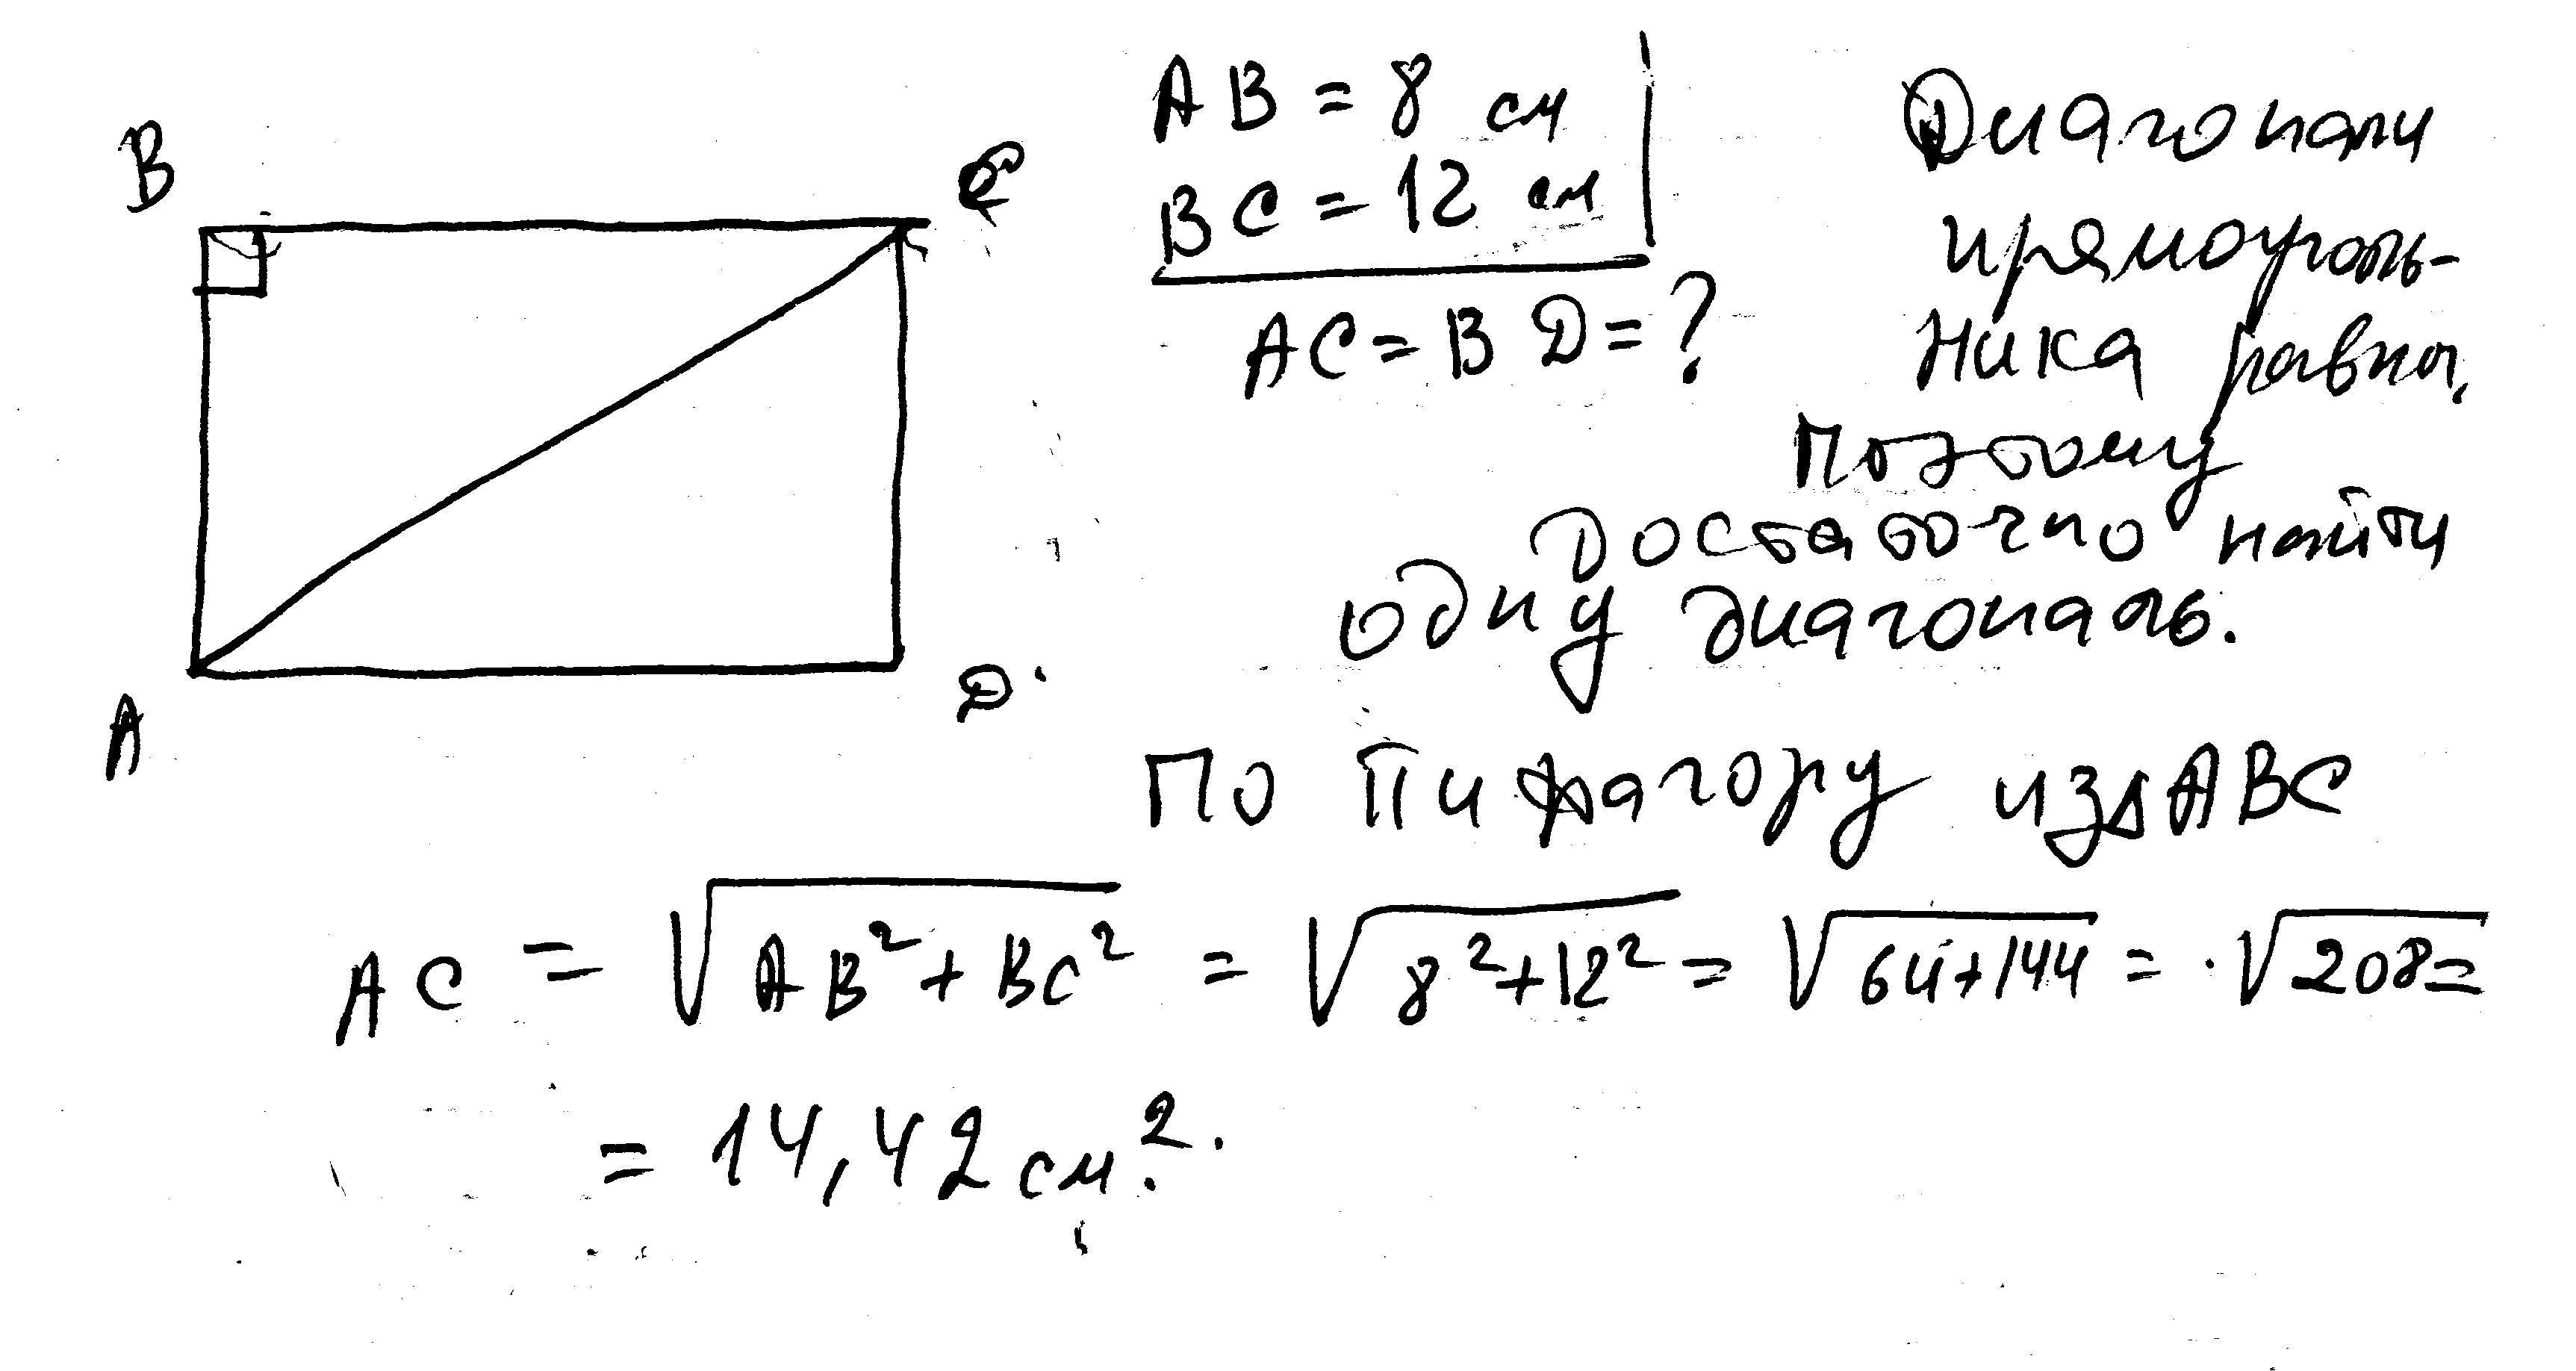 B
C
A
D
AB = 8 см
BC = 12 см
AC = BD = ?
Диагонали
прямоуголь-
ника равны.
Поэтому
достаточно найти
одну диагональ.
По Пифагору из Δ ABC
AC = √AB² + BC² = √8² + 12² = √64 + 144 = √208 =
= 14,42 см².